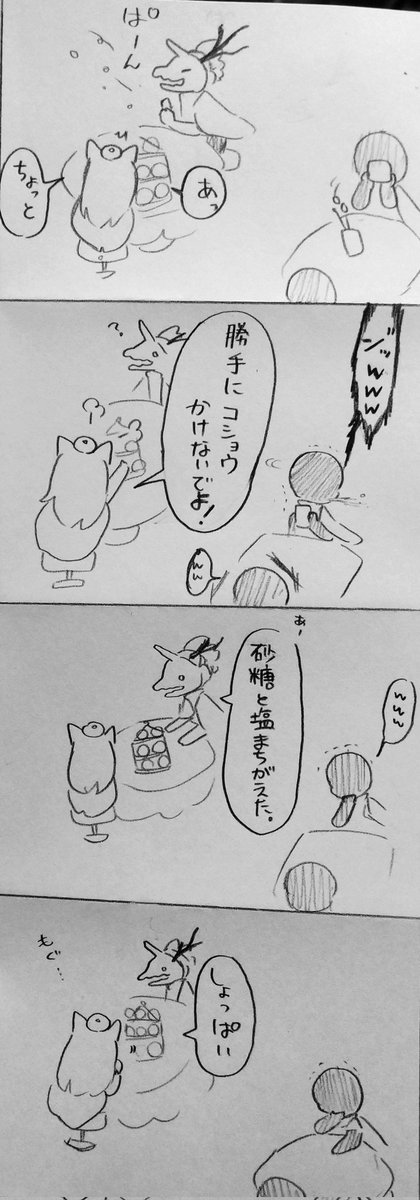 ぱーん
あっ
ちょっと
ブッwww
勝手にコショウ
かけないでよ!
ww
あー
砂糖と塩まちがえた。
www
しょっぱい
もぐ…